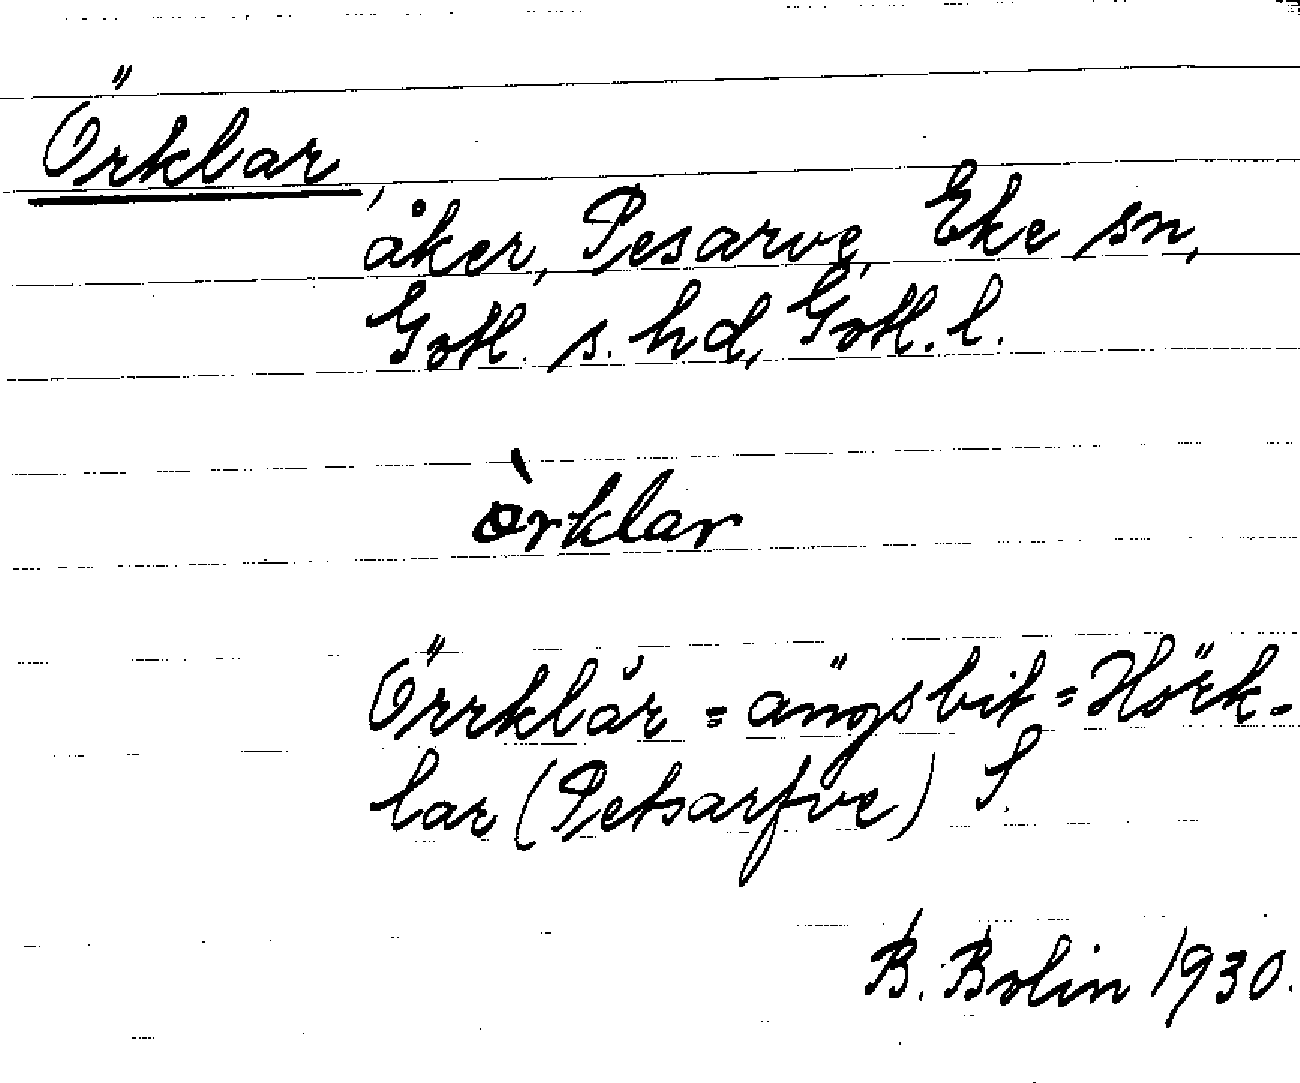 Örklar,
åker, Pesarve, Eke sn,
Gotl. s. hd, Gotl. l.
òrklar
Örrklår = ängsbit = Hörk-
lar (Petsarfve) S.
B. Bolin 1930.